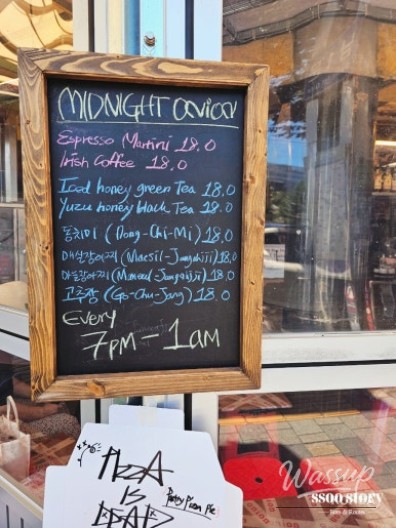 MIDNIGHT ONION
Espresso Martini 18.0
Irish Coffee 18.0
Iced honey green Tea 18.0
Yuzu honey black Tea 18.0
동치미 (Dong-Chi-Mi) 18.0
매실장아찌 (Maesil-Jangajji) 18.0
마늘장아찌 18.0
고추장 (Go-Chu-Jang) 18.0
Every
7pm - 1am
PIZZA
IS
DEAD
Wassup
SSOO STORY